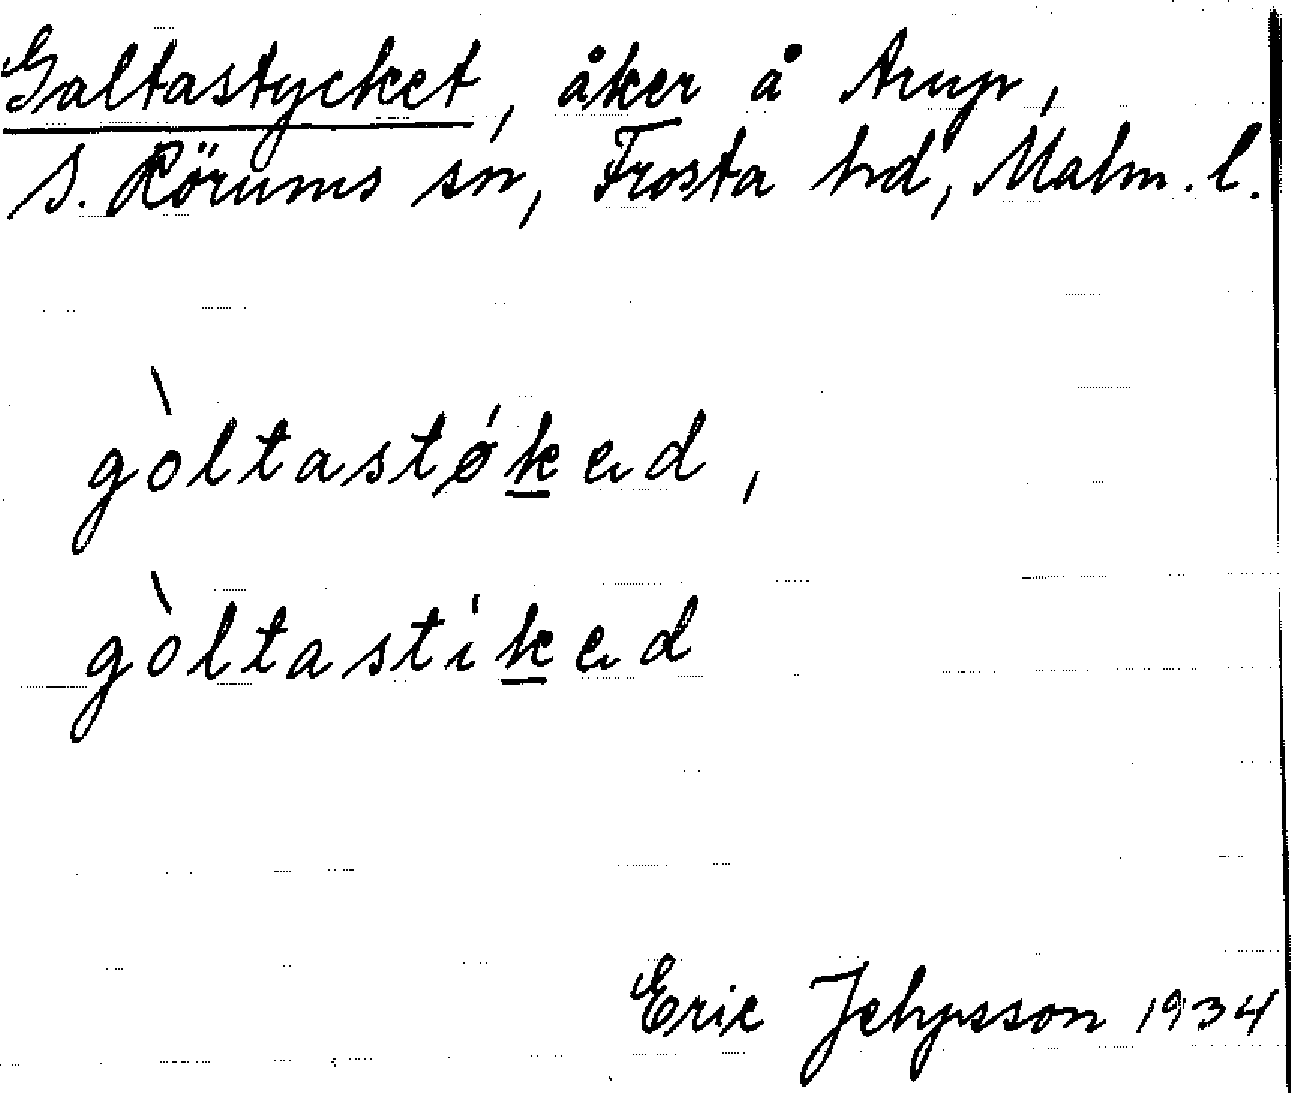 Galtastycket, åker å Arup,
S. Rörums sn, Frosta hd, Malm. l.
gòltastǿked,
gòltastíked
Eric Jehpsson 1934